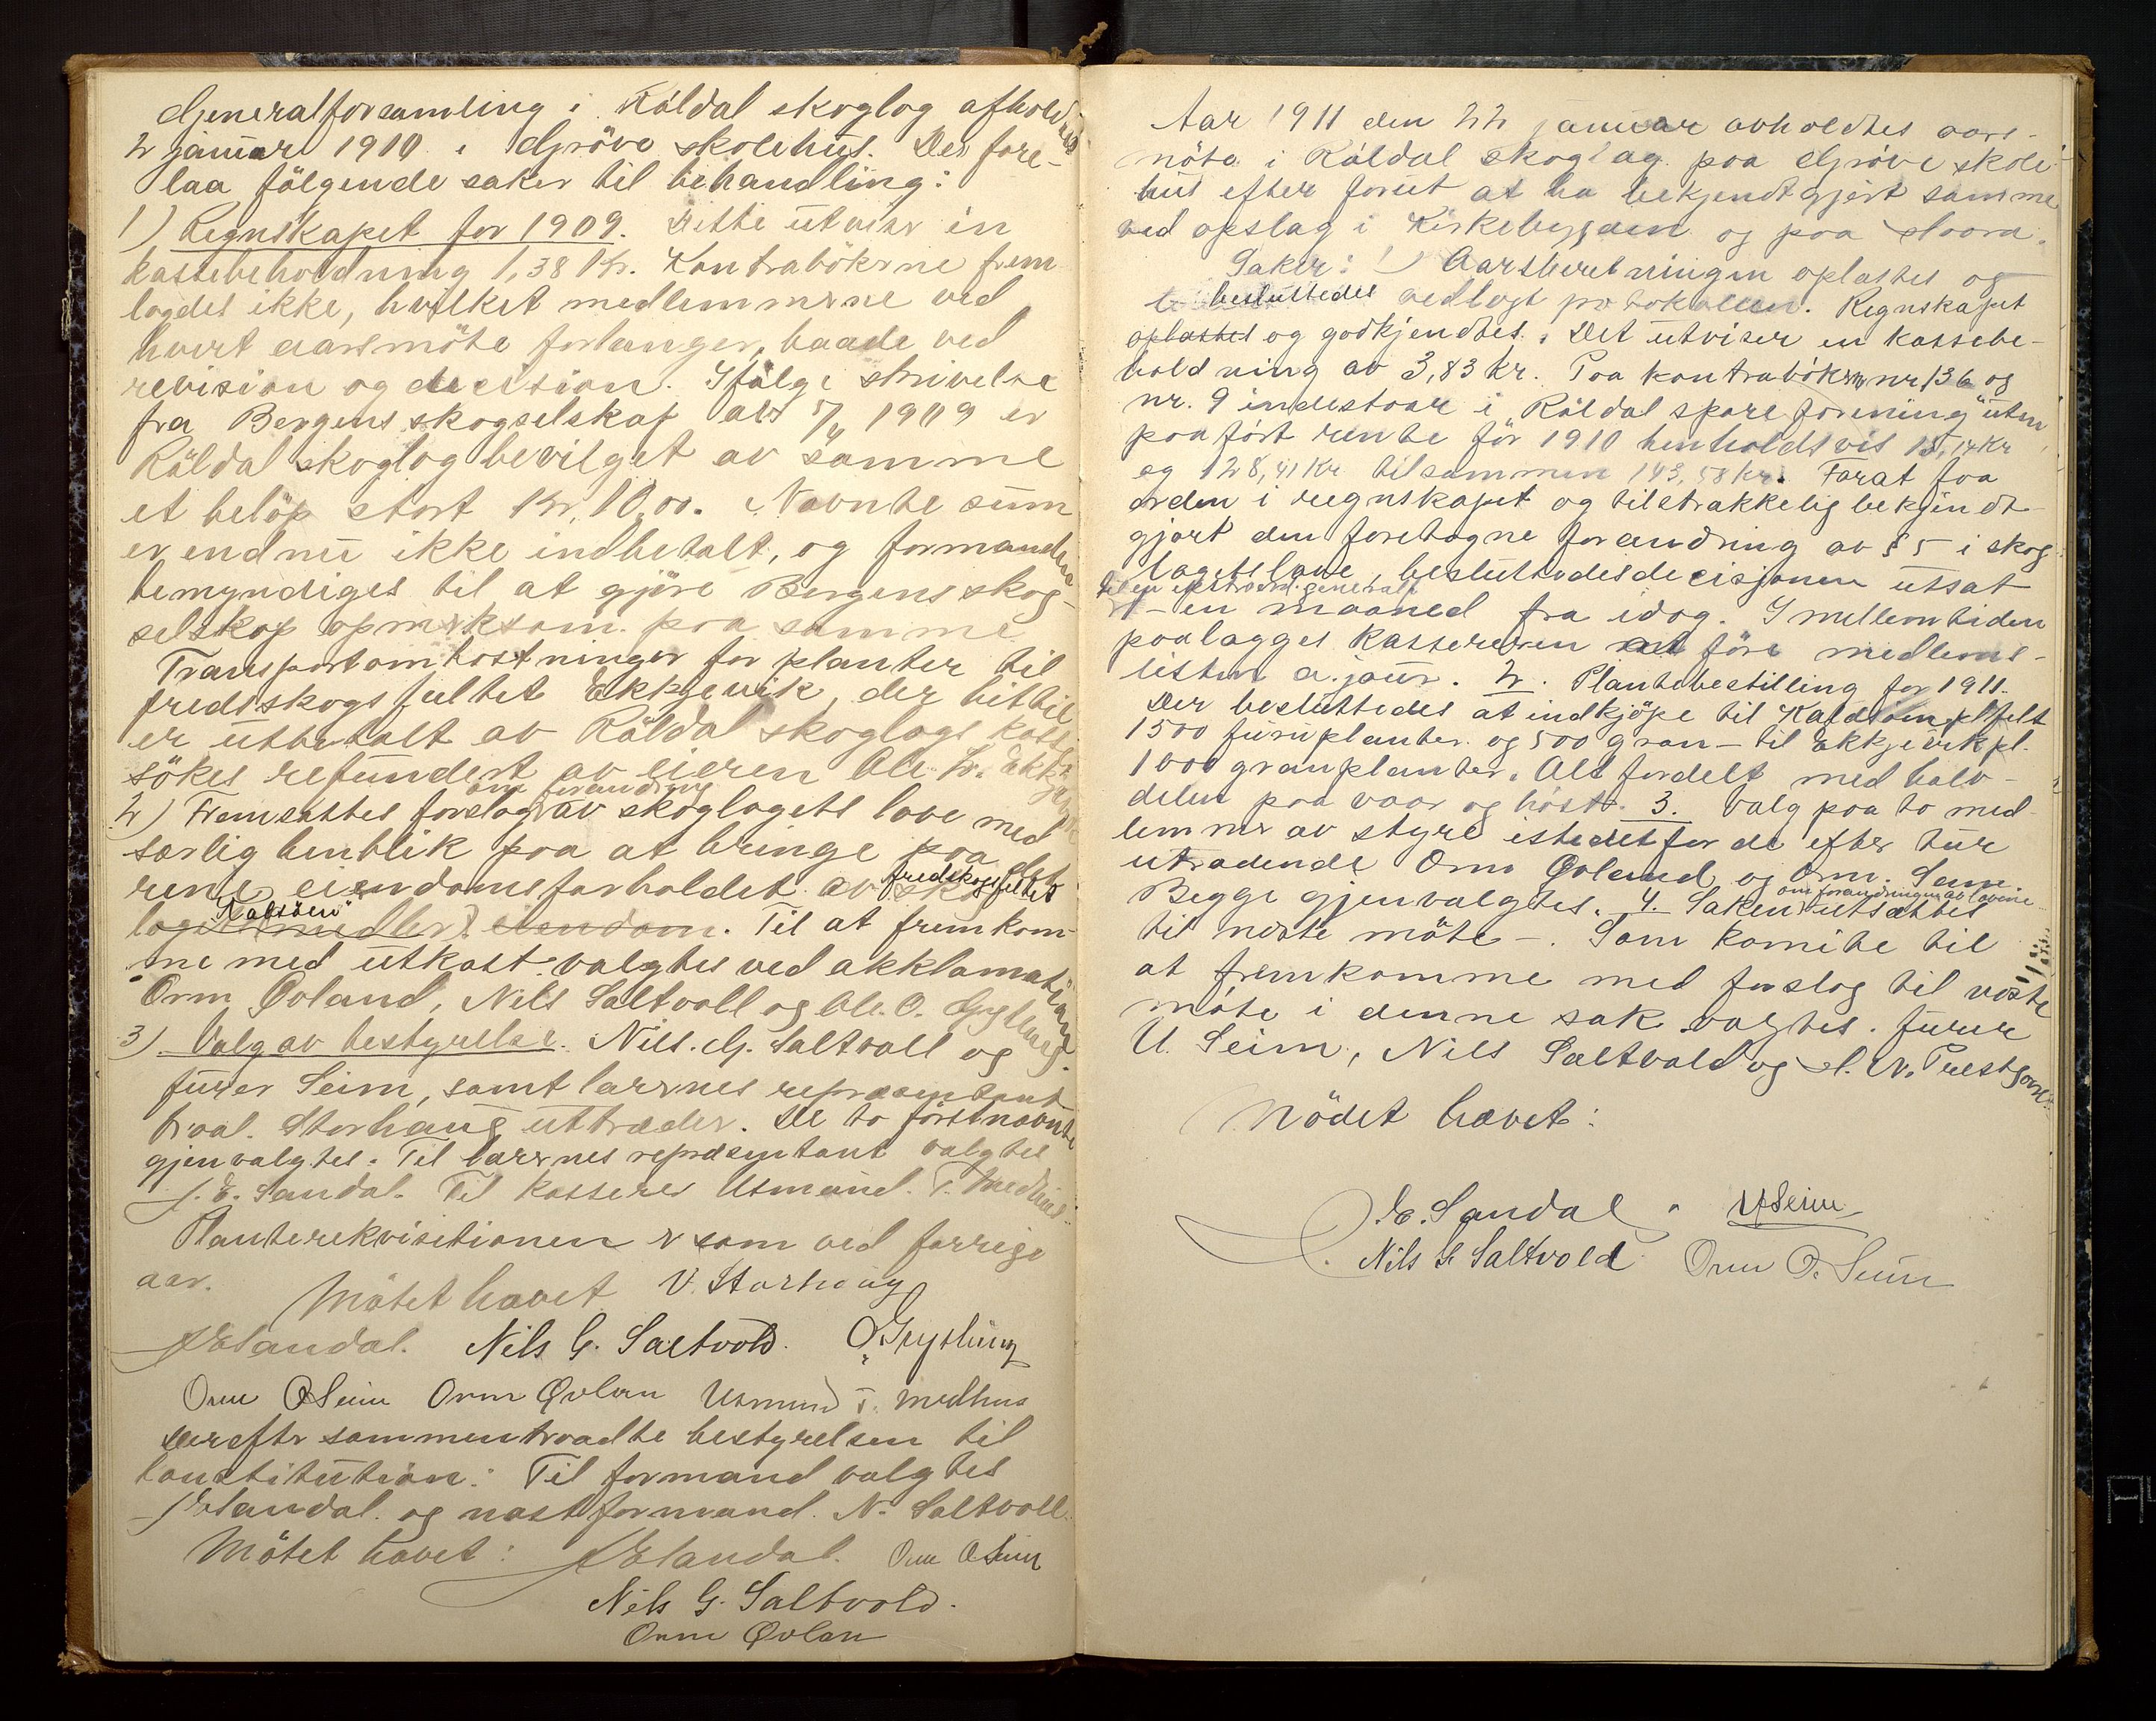 Generalforsamling i Röldal skoglag afholdtes
2 januar 1910 i Gröve skolehus. Der fore-
laa fölgende saker til behandling:
1) Regnskapet for 1909. Dette utviser en
kassebeholdning 1,38 Kr. Kontrabökerne frem
lagdes ikke, hvilket medlemmerne ved
hvert aarsmöte forlanger, baade ved
revision og decision. Ifölge skrivelse
fra Bergens skogselskap av 1909 er
Röldal skoglag bevilget av samme
et belöp stort Kr. 10,00. Nævnte sum
er endnu ikke indbetalt, og formanden
bemyndiges til at gjöre Bergens skog-
selskap opmerksom paa samme.
Transportomkostninger for planter til
fredskogsfeltet Ekkjevik, der hittil
er utbetalt av Röldal skoglags kasse
sökes refundert av eieren Ole
2) Fremsattes forslag om forandring av skoglagets love med
særlig henblik paa at bringe paa det
rene eiendomsforholdet av fredskogsfeltet
lagets midler eiendom. Til at fremkom-
me med utkast valgtes ved akklamation
Orm Qvland, Nils Saltvoll og Ole. O.
3) Valg av bestyrelse. Nils. G. Saltvoll og
furer Seim, samt lærernes repræsentant
Storhaug uttræder. De to förstnævnte
gjenvalgtes. Til lærernes repræsentant valgtes
J. E. Sandal. Til kasserer Usmund. T. Medhus.
Planterekvisitionen er som ved forrige
aar.
Mötet hævet V. Storhaug
J E Sandal. Nils G. Saltvold.
Orm O Seim Orm Qvlan Usmund T. Medhus
Derefter sammentraadte bestyrelsen til
konstitution: Til formand valgtes
J E Sandal. og næstformand. N. Saltvoll.
Mötet hævet: J E Sandal. Orm O Seim
Nils G. Saltvold.
Orm Qvlan
Aar 1911 den 22 januar avholdtes aars-
möte i Röldal skoglag paa Gröve skole-
hus efter forut at ha bekjendtgjort samme
ved opslag i Kirkebygden og paa
Saker: 1) Aarsberetningen oplæstes og
besluttedes vedlagt protokollen. Regnskapet
oplæstes og godkjendtes. Det utviser en kassebe-
holdning av 3,83 kr. Paa kontrabökerne nr 136 og
nr. 9 indestaar i "Röldal spareforening" uten
paafört rente för 1910 henholdsvis 15,17 Kr
og 128,41 Kr tilsammen 143,58 kr. Forat faa
orden i regnskapet og tilstrækkelig bekjendt
gjort den foretagne forandring av § 5 i skog
lagets love, besluttedes decisjonen utsat
til en ekstraord. generalf.
en maaned fra idag. I mellemtiden
paalægges kassereren at före medlems-
listen a. jour. 2. Plantebestilling for 1911.
Der besluttedes at indkjöpe til Kaldsöen pl.felt
1500 furuplanter og 500 gran - til Ekkjevik pl.
1000 granplanter. Alt fordelt med halv-
delen paa vaar og höst. 3. Valg paa to med
lemmer av styre istedetfor de efter tur
utrædende Orm Qvland og Orm. Seim.
Begge gjenvalgtes. 4. Saken om forandringen av lovene utsættes
til næste möte -. Som komite til
at fremkomme med forslag til næste
möte i denne sak valgtes. furer
U. Seim, Nils Saltvold og
Mödet hævet:
J. E. Sandal. U Seim
Nils G. Saltvold Orm O. Seim